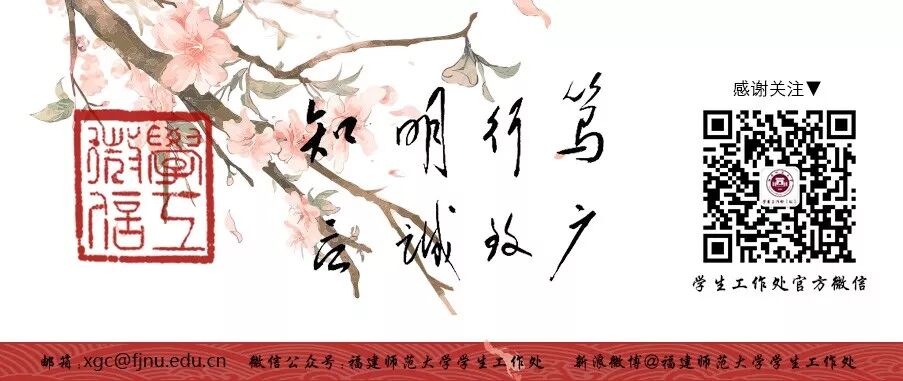 學工
微信
知明行笃
立誠致广
感谢关注▼
学生工作处官方微信
邮箱:xgc@fjnu.edu.cn 微信公众号:福建师范大学学生工作处 新浪微博@福建师范大学学生工作处